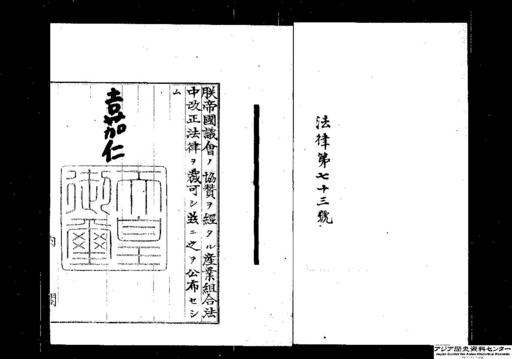 法律第七十三號
朕帝國議會ノ協贊ヲ經タル産業組合法
中改正法律ヲ裁可シ玆ニ之ヲ公布セシ
ム
嘉仁
天皇
御璽
内閣
アジア歴史資料センター
Japan Center for Asian Historical Records